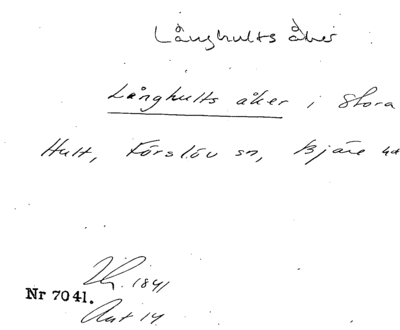 Långhults åker
Långhults åker i Stora
Hult, Förslöv sn, Bjäre hd
1841
Nr 7041.
Akt 14